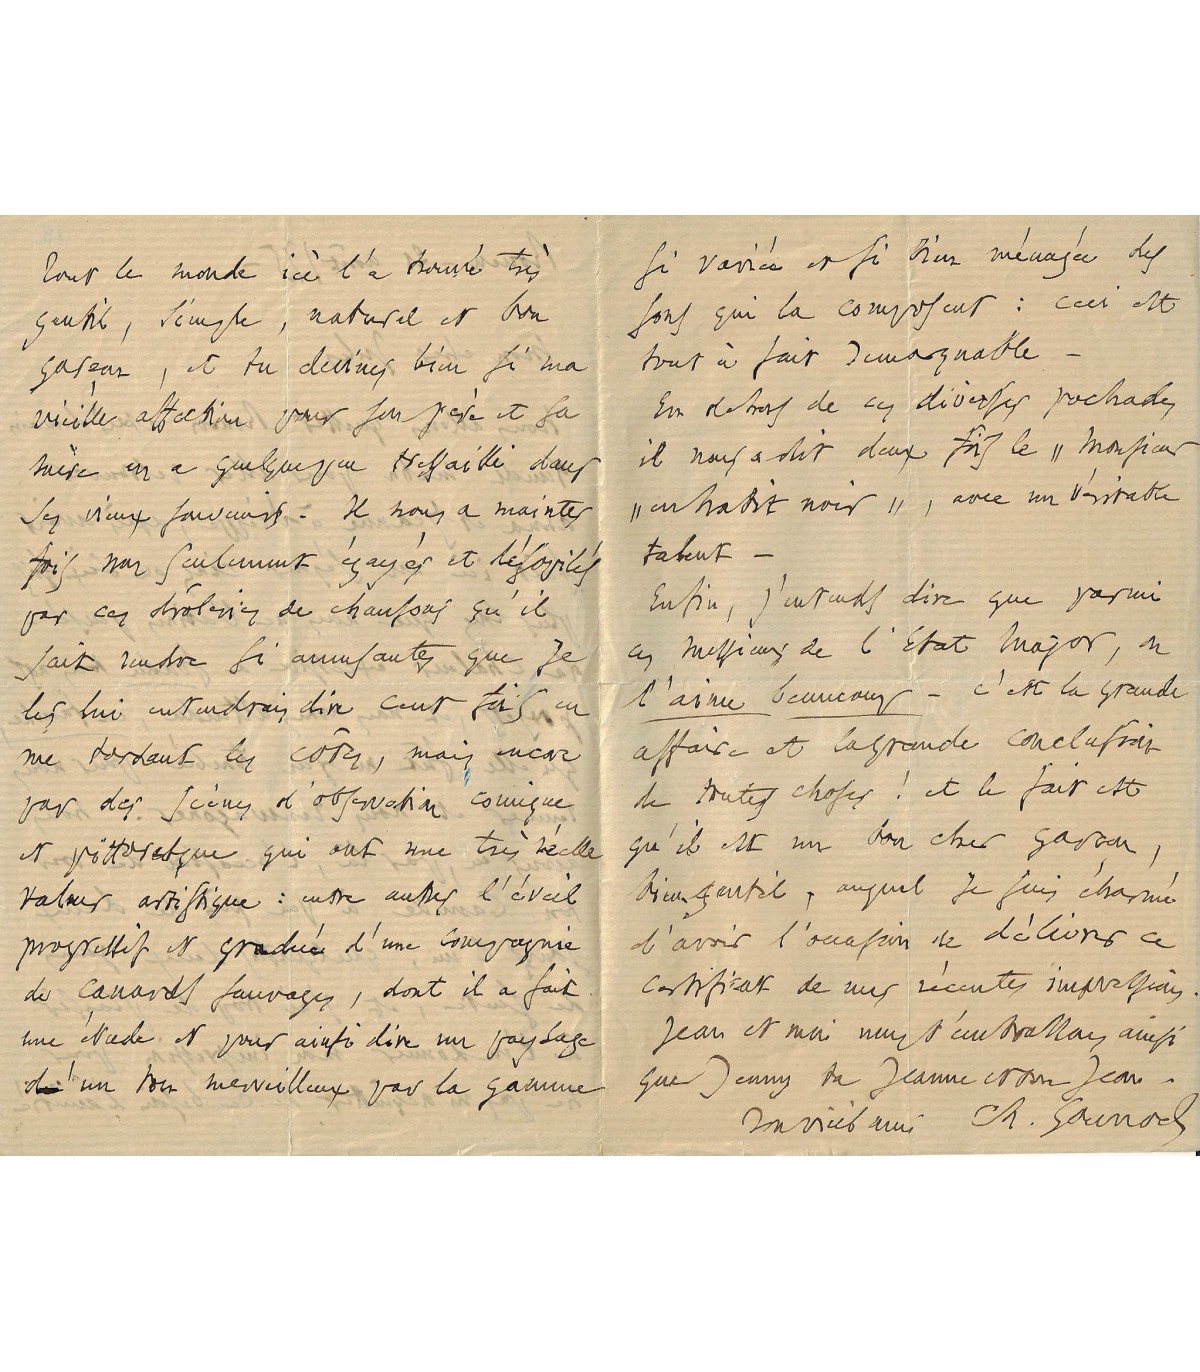 Tout le monde ici l'a trouvé très
gentil, simple, naturel et bon
garçon, et tu devines bien si ma
vieille affection pour son père et sa
mère en a quelque peu tressailli dans
ses vieux souvenirs. Il nous a maintes
fois non seulement égayés et désopilés
par ces drôleries de chansons qu'il
fait rendre si amusantes que je
les lui entendrais dire cent fois en
me tordant les côtes, mais encore
par des scènes d'observation comique
et pittoresque qui ont une très réelle
valeur artistique : entre autres l'éveil
progressif et gradué d'une compagnie
de canards sauvages, dont il a fait
une étude et pour ainsi dire un paysage
d'un ton merveilleux par la gamme
si variée et si bien ménagée des
sons qui la composent : ceci est
tout à fait remarquable —
En dehors de ces diverses pochades
il nous a dit deux fois le „ Monsieur
„ en habit noir „, avec un véritable
talent —
Enfin, j'entends dire que parmi
ces Messieurs de l'Etat Major, on
l'aime beaucoup — c'est la grande
affaire et la grande conclusion
de toutes choses ! et le fait est
qu'il est un bon cher garçon,
bien gentil, auquel je suis charmé
d'avoir l'occasion de délivrer ce
certificat de mes récentes impressions.
Jean et moi nous t'embrassons ainsi
que Jenny ta Jeanne et ton Jean.
Ton vieil ami Ch. Gounod